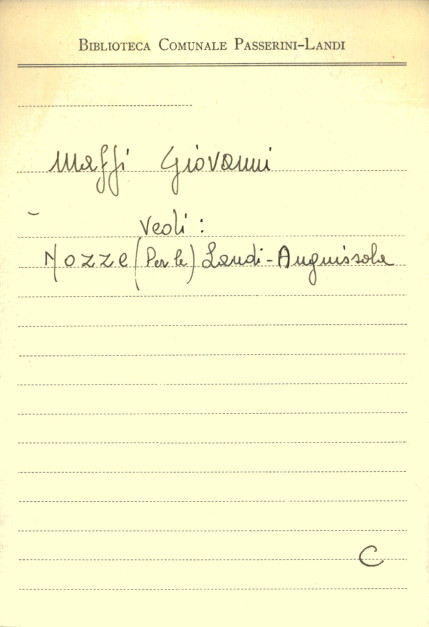 BIBLIOTECA COMUNALE PASSERINI-LANDI
Maffi Giovanni
Vedi:
Nozze (Per le) Landi-Anguissola
C